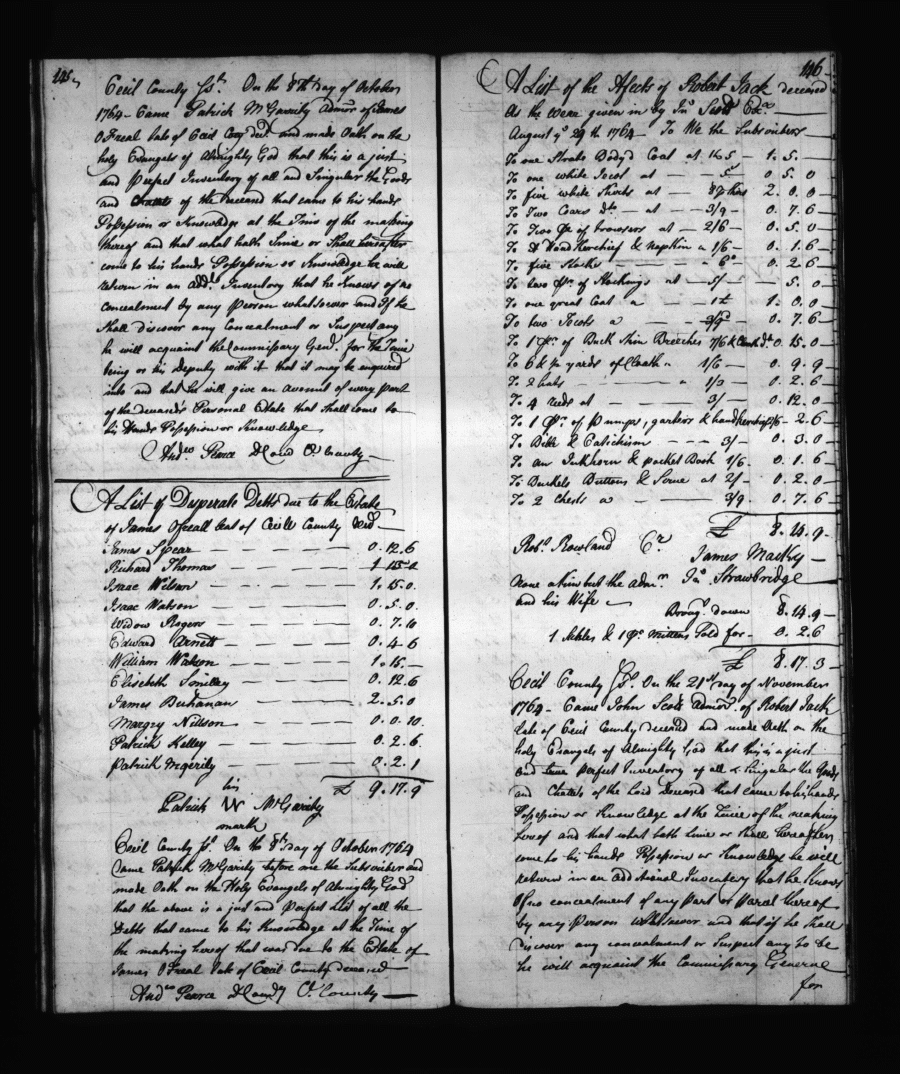 145
Cecil County Sst. On the 8th Day of October
1764 - Came Patrick McGarrity admor of James
OFreal late of Cecil Couy Decd and made Oath on the
holy Evangels of Almighty God that this is a just
and Perfect Inventory of all and Singular the Goods
and Chatels of the Deceased that came to his hands
Possession or Knowledge at the Time of the making
thereof and that what hath Since or Shall hereafter
come to his hands Possession or Knowledge he will
return in an addl Inventory that he Knows of no
concealment by any Person whatsoever and If he
Shall discover any Concealment or Suspect any
he will acquaint the Commissary Genl. for the Time
being or his Deputy with it that it may be enquired
into and that he will give an Account of every part
of the deceaseds Personal Estate that Shall come to
his Hands Possession or Knowledge
Andw Pearce D Comd Cl County
A List of Desperate Debts due to the Estate
of James Ofreall leat of Cecill County Decd
James Spear 0. 12. 6
Richard Thomas 1 15. 0
Isaac Wilson 1. 15. 0
Isaac Watson 0. 5. 0
Widow Rogers 0. 7. 10
Edward Arnett 0. 4. 6
William Watson 1. 15.
Elisebeth Smilley 0. 12. 6
James Buchanan 2. 5. 0
Margry Nillson 0. 0. 10
Patrick Kelley 0. 2. 6
Patrick Mgerily 0. 2. 1
£ 9. 17. 9
his
Patrick McGarity
mark
Cecil County Sst. On the 8th Day of October 1764
Came Patrick McGarity before me the Subscriber and
made Oath on the Holy Evangels of Almighty God
that the above is a just and Perfect List of all the
Debts that came to his Knowledge at the Time of
the making hereof that was due to the Estate of
James OFreal late of Cecil County deceased
Andw Pearce D Comdy Cl County
146
A List of the Afects of Robert Jack deceased
As the Were given in by Jno Scott Exr
August ye 29th 1764 To We the Subscribers
To one Body'd Coat at 1 5 1. 5.
To one white Jecot at 5 0. 5. 0
To five white Shirts at 8 2. 0. 0
To Two Coars do at 3/9 0. 7. 6
To Two Pr of trousers at 2/6 0. 5. 0
To A Handkerchief & Napkin a 1/6 0. 1. 6
To five Stocks 6d 0. 2. 6
To two Pr. of Stockings at 5/ 5. 0
To one great Coat a 1£ 1. 0. 0
To two Jecots a 3/9 0. 7. 6
To 1 Pr. of Buck Skin Breeches 7/6 & Cloath Do. 0. 15. 0
To 6 & ½ yards of Cloath a 1/6 0. 9. 9
To 2 hats 1/3 0. 2. 6
To 4 reeds at 3/ 0. 12. 0
To 1 Pr. of Pumps, garters & handkerchief 2/6 2. 6
To Bible & Catichism 3/ 0. 3. 0
To an Inkhorn & pocket Book 1/6 0. 1. 6
To Buckels Buttons & at 2/ 0. 2. 0
To 2 Chests a 3/9 0. 7. 6
£ 8. 14. 9
Robt. Rowland Cr.
James Macky
None akin but the Admr. Jno Strawbridge
and his Wife
Brougt. down 8. 14. 9
1 & 1 Pr. Mittens Sold for 0. 2. 6
£ 8. 17. 3
Cecil County Sst. On the 21st Day of November
1764 - Came John Scott Admor. of Robert Jack
late of Cecil County Deceased and made Oath on the
holy Evangels of Almighty God that this is a just
and true Perfect Inventory of all & Singular the Goods
and Chatels of the Said Deceased that came to his hands
Possession or Knowledge at the Time of the making
hereof and that what hath Since or Shall hereafter
come to his hands Possession or Knowledge he will
return in an additional Inventory that he Knows
of no concealment of any part or Parcel thereof
by any Person Whatsoever and that if he Shall
discover any concealment or Suspect any to be
he will acquaint the Commissary General
for